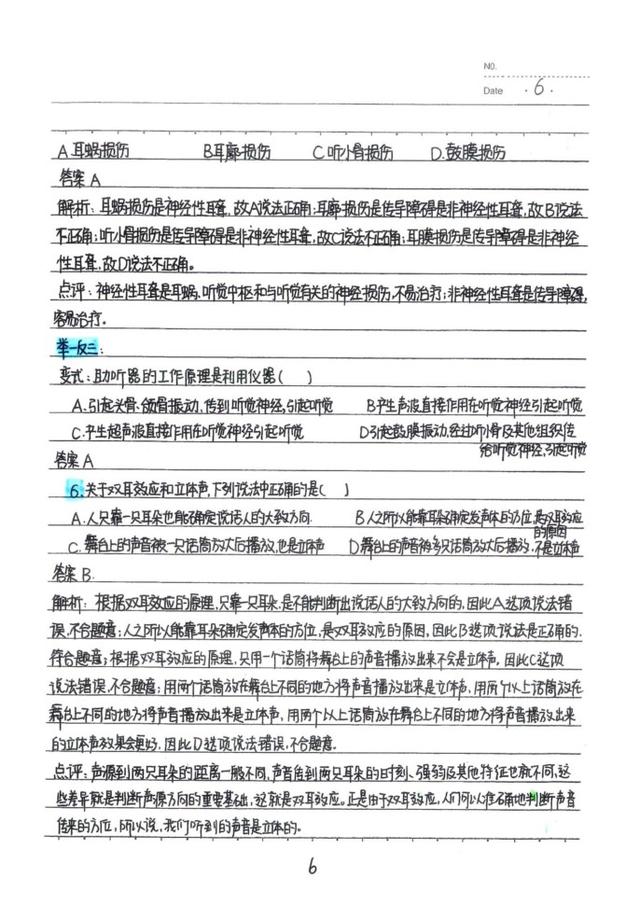 NO.
Date ·6·
A 耳蜗损伤 B耳廓损伤 C 听小骨损伤 D.鼓膜损伤
答案 A
解析:耳蜗损伤是神经性耳聋,故A说法正确;耳廓损伤是传导障碍是非神经性耳聋,故B说法
不正确;听小骨损伤是传导障碍是非神经性耳聋,故C说法不正确;耳膜损伤是传导障碍是非神经
性耳聋,故D说法不正确。
点评:神经性耳聋是耳蜗、听觉中枢和与听觉有关的神经损伤,不易治疗;非神经性耳聋是传导障碍,
容易治疗。
举一反三:
变式:助听器的工作原理是利用仪器( )
A.引起头骨、颌骨振动,传到听觉神经,引起听觉 B产生声波直接作用在听觉神经引起听觉
C.产生超声波直接作用在听觉神经引起听觉 D引起鼓膜振动,经过听小骨及其他组织传
给听觉神经,引起听觉
答案 A
6.关于双耳效应和立体声,下列说法中正确的是( )
A.人只靠一只耳朵也能确定说话人的大致方向. B人之所以能靠耳朵确定发声体的方位,是双耳效应
的原因
C.舞台上的声音被一只话筒放大后播放,也是立体声 D舞台上的声音被多只话筒放大后播放,不是立体声
答案 B.
解析:根据双耳效应的原理,只靠一只耳朵,是不能判断出说话人的大致方向的,因此A选项说法错
误,不合题意;人之所以能靠耳朵确定发声体的方位,是双耳效应的原因,因此B选项说法是正确的.
符合题意;根据双耳效应的原理,只用一个话筒将舞台上的声音播放出来不会是立体声,因此C选项
说法错误,不合题意;用两个话筒放在舞台上不同的地方将声音播放出来是立体声,用两个以上话筒放在
舞台上不同的地方将声音播放出来是立体声,用两个以上话筒放在舞台上不同的地方将声音播放出来
的立体声效果会更好,因此D选项说法错误,不合题意。
点评:声源到两只耳朵的距离一般不同,声音传到两只耳朵的时刻、强弱及其他特征也就不同,这
些差异就是判断声源方向的重要基础,这就是双耳效应。正是由于双耳效应,人们可以准确地判断声音
传来的方位,所以说,我们听到的声音是立体的。
6